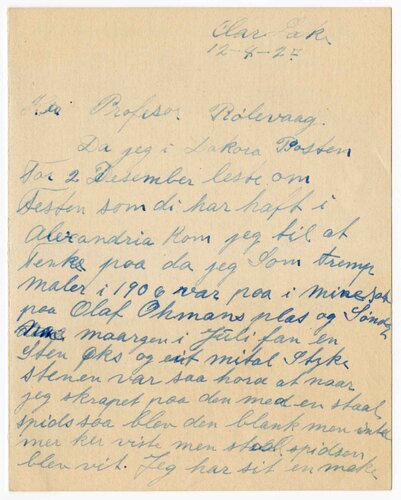 Clar Lake
12-4-27
Profesor Rölevaag.
Da jeg i Dakota Posten
for 2 Desember leste om
Festen som di har haft i
Alexandria kom jeg til at
tenke paa da jeg som tremp
maler i 1906 var paa i
paa Olaf Ohmans plas og Søndag
maargen i Juli fan en
Sten Øks og eit mital Stykke
stenen var saa hord at naar
jeg skrapet paa den med en staal
spids saa blev den blank men intet
mer ker viste men staal spidsen
blev vit. Jeg har sit en make